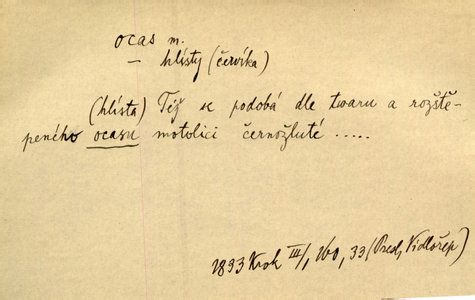 ocas m.
– hlísty (červíka)
(hlísta) Též se podobá dle twaru a rozště-
peného ocasu motolici černožluté .....
1833 Krok III/1, 160, 33 (Presl, Vidlořep)